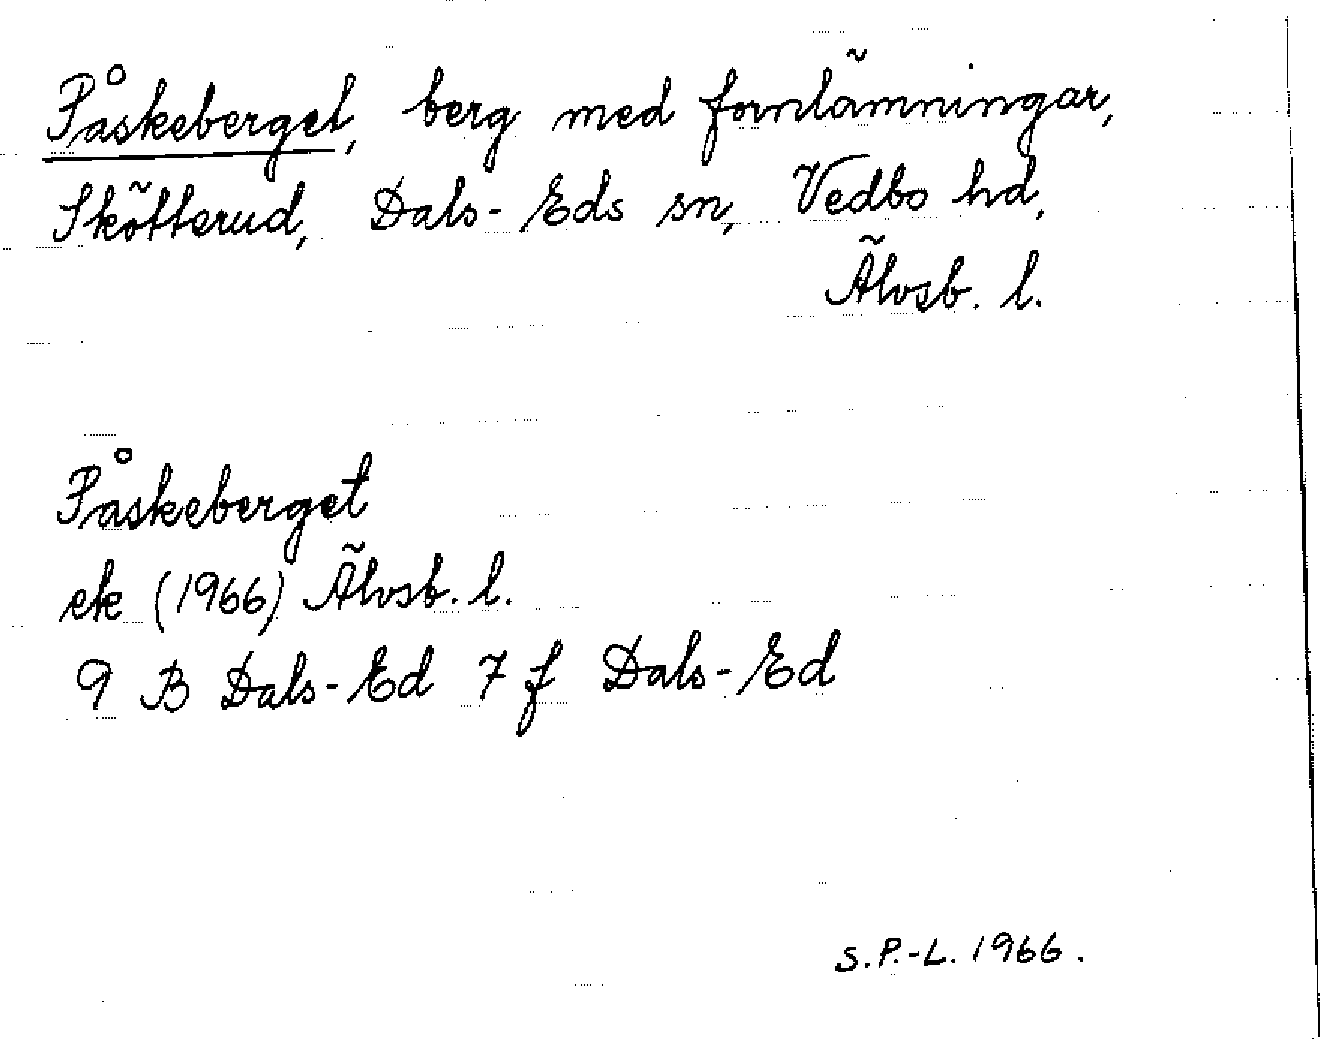 Påskeberget, berg med fornlämningar,
Skötterud, Dals-Eds sn, Vedbo hd,
Älvsb. l.
Påskeberget
ek (1966) Älvsb. l.
9 B Dals-Ed 7 f Dals-Ed
S.P.-L. 1966.